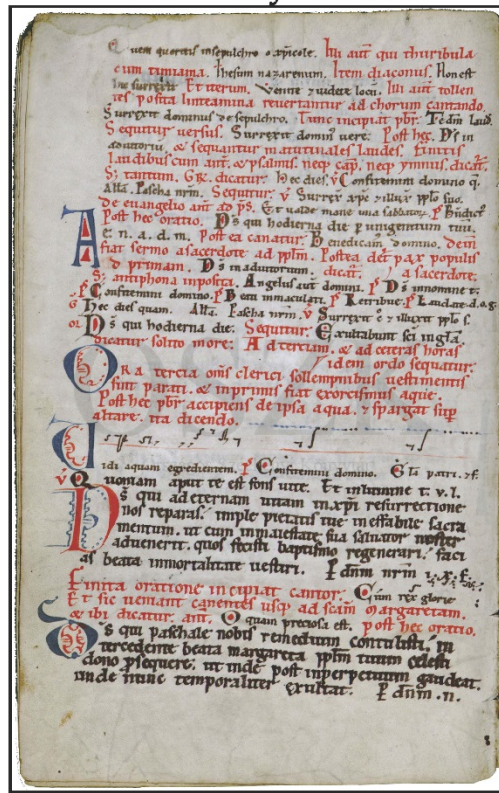 Quem queritis in sepulchro o xpicole. Illi aut qui thuribula
cum timiama. Ihesum nazarenum. Item diaconus. Non est
hic surrexit Et iterum. Venite & videte locu. Illi aut tollen
tes posita linteamina revertantur ad chorum cantando.
Surrexit dominus de sepulchro. Tunc incipiat pbr. Te dm laud.
Sequitur versus. Surrexit domin vere. Post hec. Ds in
adiutoriu. & sequantur matutinales laudes. Finitis
laudibus cum ant. & psalmis. neq cap. neq ymnus. dicat.
S; tantum. GR. dicatur. Hec dies. v Confitemini domino q.
Alla. Pascha nrm. Sequitur. v Surrex xpc & illux pplo suo.
de evangelio ant ad ps. Et valde mane una sabbator. p Bndict
Post hec oratio. Ds qui hodierna die p unigenitum tuu.
Ae. n. a. d. m. Post ea canatur. Benedicam domino. Dein
fiat sermo a sacerdote ad pplm. Postea det pax populis
ad primam. Ds in adiutorium. dicat a sacerdote.
S; antiphona inposita. Angelus aut domini. p Ds in nomine t.
p Confitemini domino. p Beati inmaculati. p Retribue. p Laudate d. o. g.
G Hec dies quam. Alla. Pascha nrm. v Surrexit & illuxit pplo s.
or. Ds qui hodierna die. Sequitur. Exultabunt sci in gla.
Dicatur solito more. Ad terciam. & ad ceteras horas
idem ordo sequatur.
ORA tercia oms clerici sollempnibus vestimentis
sint parati. & inprimis fiat exorcismus aque.
Post hec pbr accipiens de ipsa aqua. & spargat sup
altare. ita dicendo.
Vidi aquam egredientem. p Confitemini domino. Gla patri. &f.
v Quoniam aput te est fons vite. Et in lumine t. v. l.
Ds qui ad eternam vitam in xpi resurrectione
nos reparas. imple pietatis tue ineffabile sacra
mentum. ut cum in maiestate sua salvator noster
advenerit. quos fecisti baptismo regenerari. faci
as beata inmortalitate vestiri. P dnm nrm
Finita oratione incipiat cantor. Cum rex glorie
Et sic veniant canentes usq ad scam Margaretam.
& ibi dicatur ant. O quam preciosa est. post hec oratio.
Ds qui paschale nobis remedium contulisti. in
tercedente beata margareta pplm tuum celesti
dono psequere. ut inde post in perpetuum gaudeat.
unde nunc temporaliter exultat. P dnm. n.